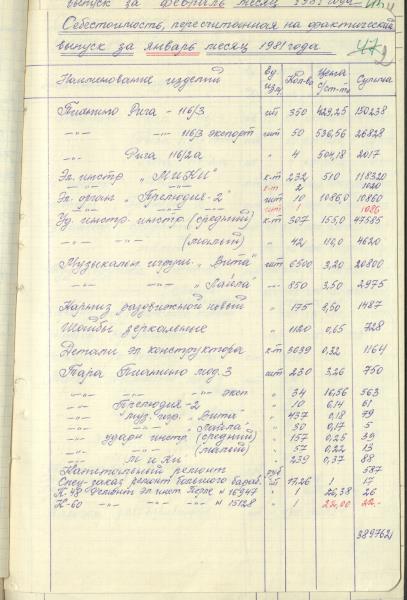 выпуск за февраль месяц 1981 года
Себестоимость, пересчитанная на фактический
выпуск за январь месяц 1981 года
Наименование изделий ед. изм. Кол-во Цена с/ст-ть Сумма
Пианино Рига - 116/3 шт 350 429,25 150238
-"- -"- 116/3 экспорт шт 50 536,56 26828
-"- Рига 116/2а " 4 504,18 2017
Эл. инстр. „Мики" к-т 232 510 118320
к-т 2 1020
Эл. орган „Прелюдия-2" шт 10 1086,0 10860
шт 1 1086
Уд. инстр. инстр (средний) к-т 307 155,0 47585
-"- -"- (малый) " 42 110,0 4620
Музыкальн игруш. „Вита" шт 6500 3,20 20800
-"- -"- „Лайла" -"- 850 3,50 2975
Карниз раздвижной новый " 175 8,50 1487
Шайбы зеркальные " 1120 0,65 728
Детали эл конструктора к-т 3639 0,32 1164
Тара Пианино мод. 3 шт 230 3,26 750
-"- -"- -"- эксп " 34 16,56 563
-"- Прелюдия-2 " 10 6,14 61
-"- муз. игр. „Вита" " 437 0,18 79
-"- -"- „Лайла" " 30 0,17 5
-"- ударн инстр. (средний) " 157 0,25 39
-"- -"- (малый) " 57 0,22 13
-"- Мики " 239 0,37 88
Капитальный ремонт руб 587
Спец-заказ ремонт большого бараб. шт 17,26 1 17
П-48 Ремонт эл инст № 16947 " 1 26,38 26
К-60 -"- -"- № 15128 " 1 22,00 22.-
389762